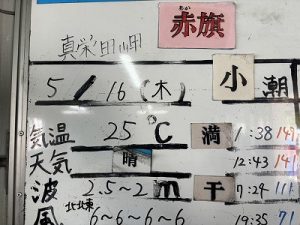 真栄田岬 赤旗
あか
5/16(木) 小潮
気温 25℃ 満 1:38 147
天気 晴 12:43 141
波 2.5~2m 干 7:24 111
風 北~北東 6~6~6~6 19:35 71